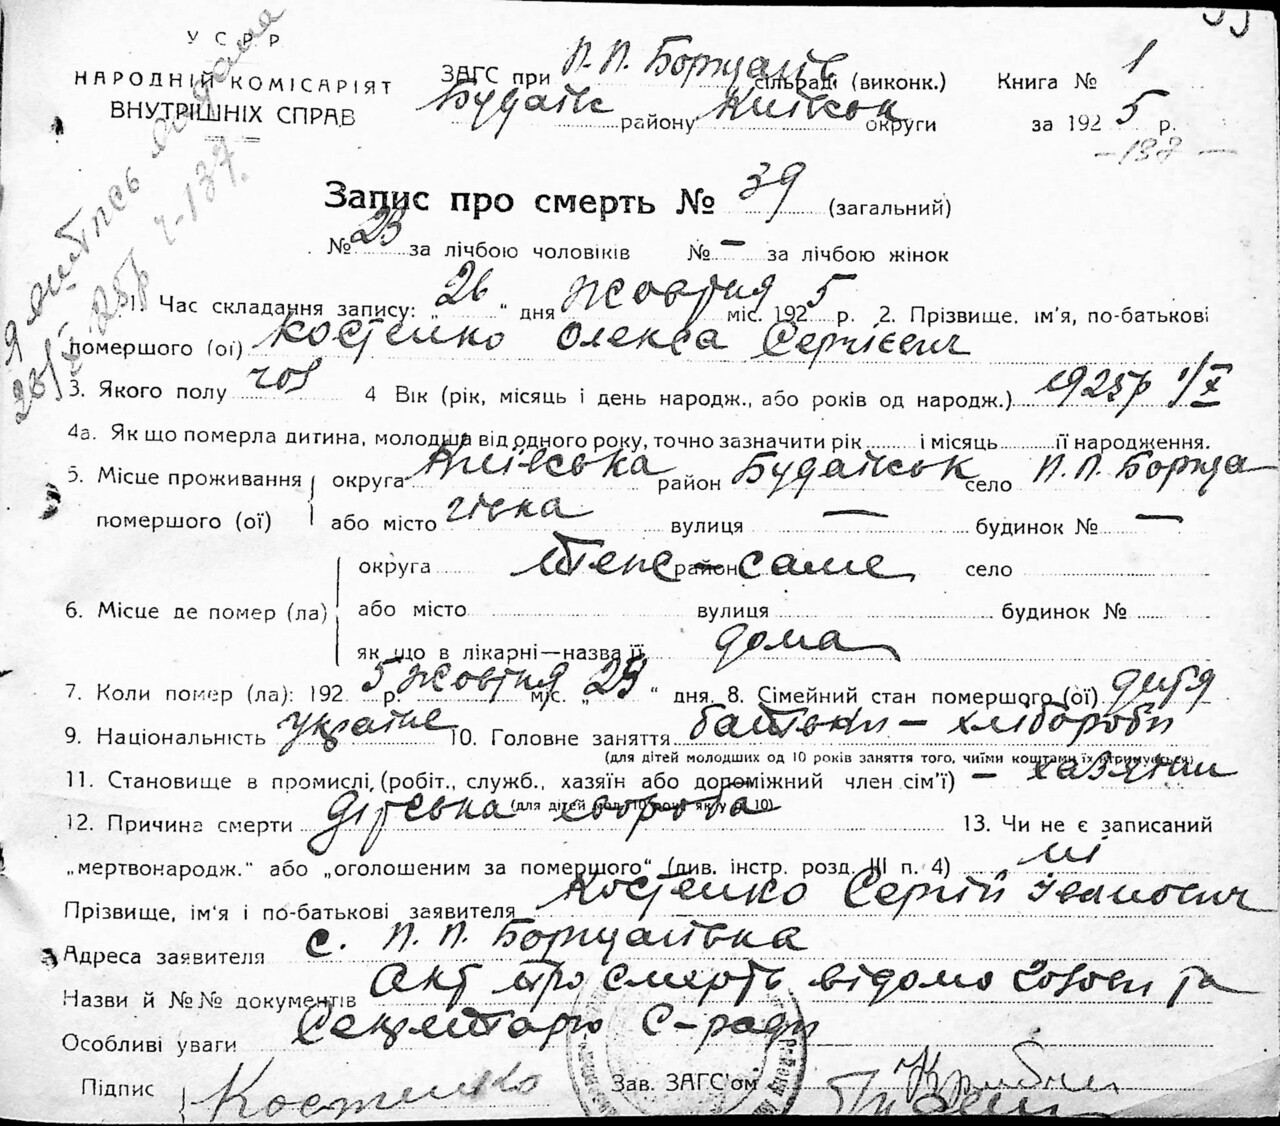 У С Р Р
НАРОДНІЙ КОМІСАРІЯТ
ВНУТРІШНІХ СПРАВ
ЗАГС при П.П. Борщагів сільраді (виконк.)
Будаїв району Київськ округи
Книга № 1
за 192 5 р.
-137-
Запис про смерть № 39 (загальний)
№ 23 за лічбою чоловіків № – за лічбою жінок
1. Час складання запису: „ 26 “ дня жовтня міс. 192 5 р. 2. Прізвище, ім'я, по-батькові
помершого (ої) Костенко Олекса Сергієвич
3. Якого полу чол 4 Вік (рік, місяць і день народж., або років од народж.) 1925р 1/X
4а. Як що померла дитина, молодша від одного року, точно зазначити рік і місяць її народження.
5. Місце проживання округа Київська район Будаївськ село П.П. Борща
помершого (ої) або місто гівка вулиця — будинок №—
округа Теж район саме село
6. Місце де помер (ла) або місто вулиця будинок №
як що в лікарні—назва її дома
7. Коли помер (ла): 192 5 р. жовтня міс. „ 25 “ дня. 8. Сімейний стан помершого (ої) дитя
9. Національність україне 10. Головне заняття батьки – хлібороби
(для дітей молодших од 10 років заняття того, чиїми коштами їх утримується)
11. Становище в промислі, (робіт., служб., хазяїн або допоміжний член сім'ї) – хазяїни
(для дітей мол. 10 років як у п. 10)
12. Причина смерти дітська хвороба 13. Чи не є записаний
„мертвонародж.“ або „оголошеним за помершого“ (див. інстр. розд. III п. 4) ні
Прізвище, ім'я і по-батькові заявителя Костенко Сергій Іванович
Адреса заявителя с. П.П. Борщагівка
Назви й №№ документів Акт про смерть відомо голові та
Особливі уваги Секретарю С-ради
Підпис Костенко Зав. ЗАГС'ом